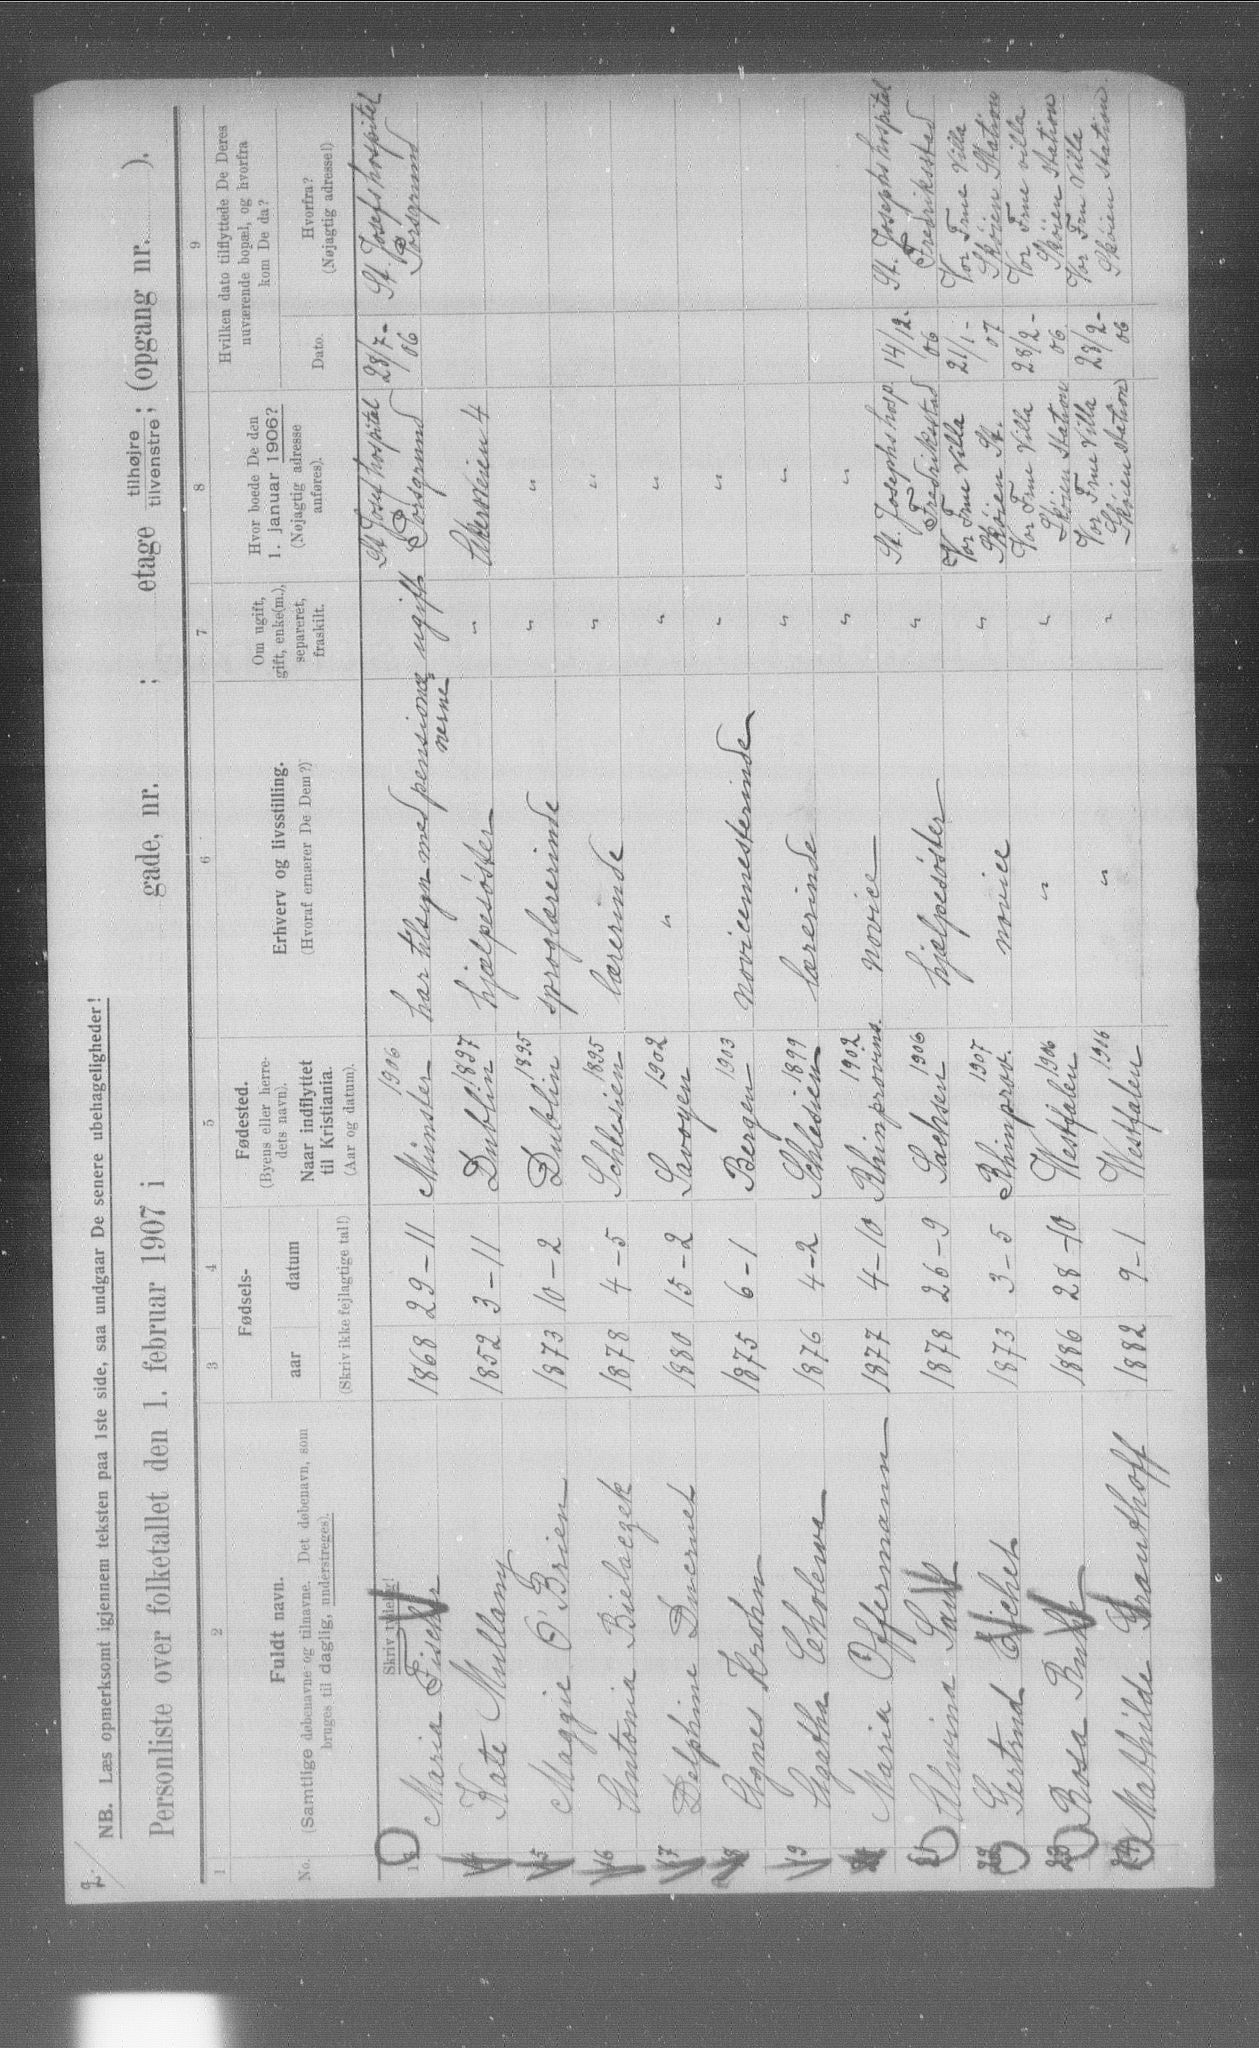 2.
NB. Læs opmerksomt igjennem teksten paa 1ste side, saa undgaar De senere ubehageligheder!
Personliste over folketallet den 1. februar 1907 i gade, nr. ; etage tilhøjre tilvenstre; (opgang nr. ).
1 2 3 4 5 6 7 8 9
No.
Fuldt navn.
(Samtlige døbenavne og tilnavne. Det døbenavn, som
bruges til daglig, understreges).
Fødsels-
aar datum
(Skriv ikke fejlagtige tal!)
Fødested.
(Byens eller herre-
dets navn).
Naar indflyttet
til Kristiania.
(Aar og datum).
Erhverv og livsstilling.
(Hvoraf ernærer De Dem?)
Om ugift,
gift, enke(m.),
separeret,
fraskilt.
Hvor boede De den
1. januar 1906?
(Nøjagtig adresse
anføres).
Hvilken dato tilflyttede De Deres
nuværende bopæl, og hvorfra
kom De da?
Dato.
Hvorfra?
(Nøjagtig adresse!)
Skriv tydelig!
Maria Fischer 1868 29-11 Münster 1906 har tilsyn med pensionæ- nerne ugift St. Josef hospital Porsgrund 28/7-06 St. Josefs hospital Porsgrund
14 Kate Mullany 1852 3-11 Dublin 1897 hjælpesøster " Akersveien 4
15 Maggie O'Brien 1873 10-2 Dublin 1895 sproglærerinde " "
16 Antonia Bielaczek 1878 4-5 Schlesien 1895 lærerinde " "
17 Delphine Ducruet 1880 15-2 Savoyen 1902 " " "
18 Agnes Krohn 1875 6-1 Bergen 1903 novicemesterinde " "
19 Agatha Cholewa 1876 4-2 Schlesien 1899 lærerinde " "
Maria Offermann 1877 4-10 Rhinprovins. 1902 novice " "
21 Alwina 1878 26-9 Sachsen 1906 hjælpesøster " St. Josephs hosp. Fredrikstad 14/12-06 St. Josephs hospital Fredriksstad
22 Gertrud Eichel 1873 3-5 Rhinprov. 1907 novice " Vor Frue Villa Skøien St. 21/1-07 Vor Frue Villa Skøien Station
23 Rosa 1886 28-10 Westfalen 1906 " " Vor Frue Villa Skøien Station 28/2-06 Vor Frue villa Skøien Station
24 Mathilde Grauthoff 1882 9-1 Westfalen 1906 " " Vor Frue Villa Skøien station 28/2-06 Vor Fru Villa Skøien station